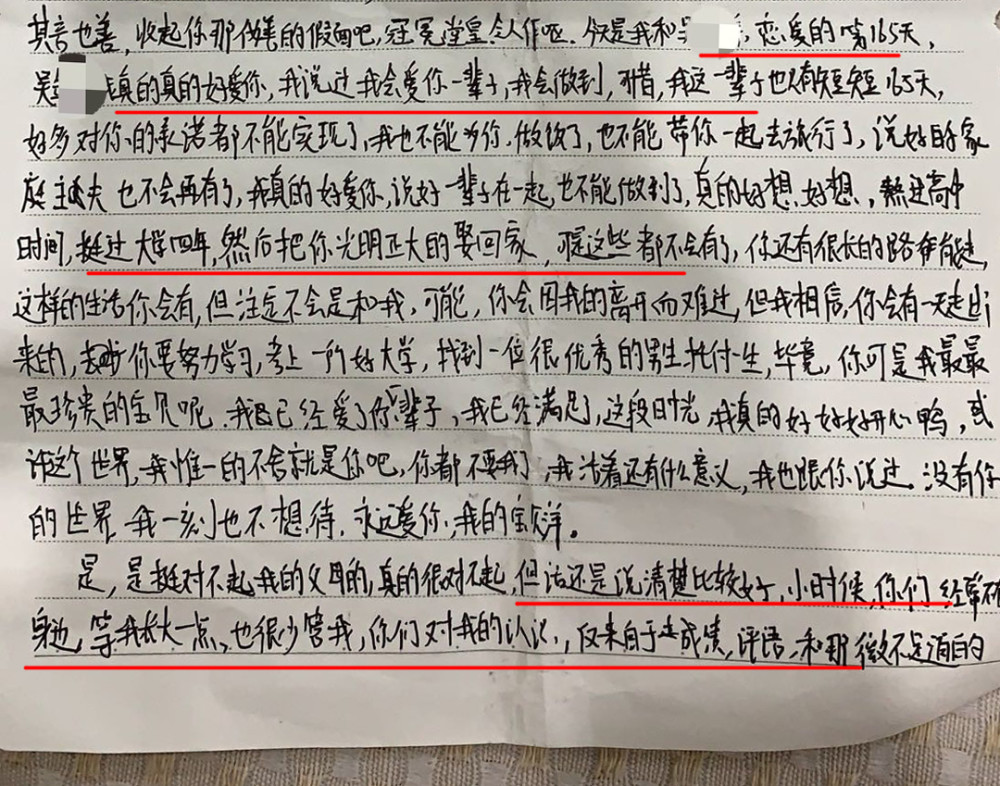 其言也善，收起你那伪善的假面吧，冠冕堂皇，令人作呕。今天是我和吴，恋爱的第165天，
吴真的真的好爱你，我说过我会爱你一辈子，我会做到，可惜，我这一辈子也只有短短165天，
好多对你的承诺都不能实现了，我也不能为你，做饭了，也不能带你一起去旅行了，说好的家
庭主夫也不会再有了，我真的好爱你，说好一辈子在一起，也不能做到了，真的好想，好想，熬过高中
时间，挺过大学四年，然后把你光明正大的娶回家，可是这些都不会有了，你还有很长的路
这样的生活你会有，但注定不会是和我，可能，你会因我的离开而难过，但我相信，你会有一天走出
来的，你要努力学习，考上一所好大学，找到一位很优秀的男生托付一生，毕竟，你可是我最最
最珍贵的宝贝呢，我已经爱了你一辈子，我已经满足了，这段时光，我真的好好好开心鸭，或
许这个世界，我惟一的不舍就是你吧，你都不要我了，我活着还有什么意义，我也跟你说过，没有你
的世界，我一刻也不想待，永远爱你，我的宝洋。
是，是挺对不起我的父母的，真的很对不起，但话还是说清楚比较好，小时候，你们经常不
身边，等我长大一点，也很少管我，你们对我的认识，仅来自于成绩，评语，和那微不足道的